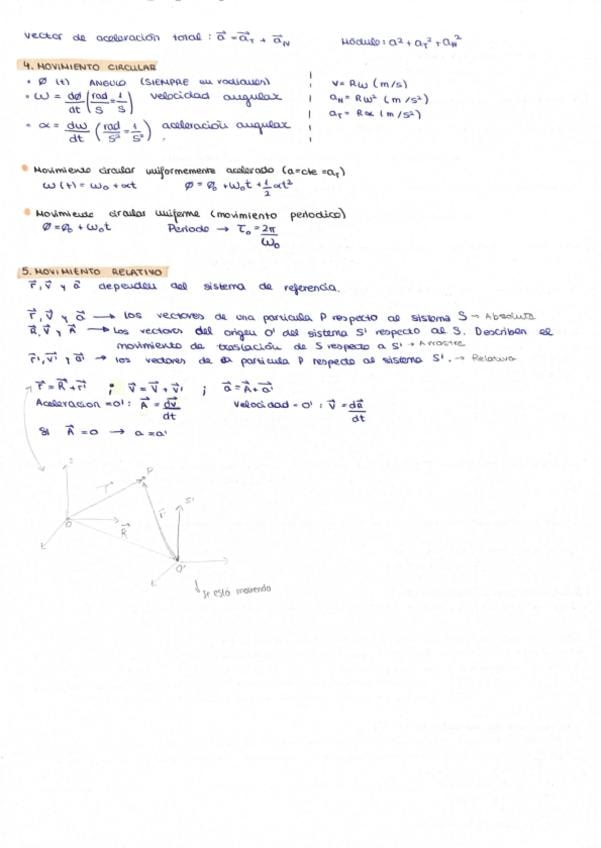 vector de aceleración total : a⃗ = a⃗_T + a⃗_N   Módulo: a² + a_T² + a_N²
4. MOVIMIENTO CIRCULAR
• Ø (t) ANGULO (SIEMPRE en radianes)
• ω = dø/dt (rad/s = 1/s) velocidad angular
• α = dω/dt (rad/s² = 1/s²) aceleración angular
v = Rω (m/s)
a_N = Rω² (m/s²)
a_T = Rα (m/s²)
• Movimiento circular uniformemente acelerado (a=cte=a_T)
ω(t) = ω₀ + αt   Ø = Ø₀ + ω₀t + 1/2 αt²
• Movimiento circular uniforme (movimiento periodico)
Ø = Ø₀ + ω₀t   Periodo → τ₀ = 2π/ω₀
5. MOVIMIENTO RELATIVO
r⃗, v⃗ y a⃗ dependen del sistema de referencia.
r⃗, v⃗ y a⃗ → los vectores de una particula P respecto al sistema S → Absoluta
R⃗, V⃗ y A⃗ → los vectores del origen O' del sistema S' respecto al S. Describen el
movimiento de traslación de S respecto a S' → Arrastre
r⃗', v⃗' y a⃗' → los vectores de particula P respecto al sistema S'. → Relativa
r⃗ = R⃗ + r⃗' ; v⃗ = V⃗ + v⃗' ; a⃗ = A⃗ + a⃗'
Aceleracion = O' : A⃗ = dv⃗/dt   Velocidad = O' : V⃗ = da⃗/dt
Si A⃗ = 0 → a = a'
S
P
r⃗
S'
O
R⃗
O'
se está moviendo